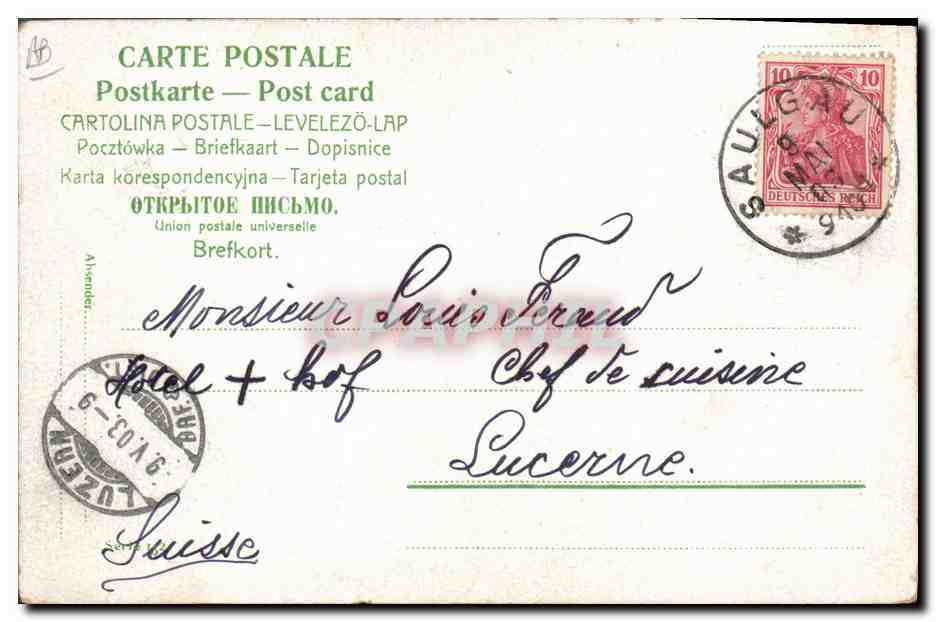 AB
CARTE POSTALE
Postkarte — Post card
CARTOLINA POSTALE – LEVELEZÖ-LAP
Pocztówka – Briefkaart – Dopisnice
Karta korespondencyjna – Tarjeta postal
ОТКРЫТОЕ ПИСЬМО.
Union postale universelle
Brefkort.
10 10
DEUTSCHES REICH
SAULGAU
MAI
Absender.
Monsieur Louis Feraud
Hotel + hof Chef de cuisine
Lucerne.
LUZERN
9.V.03.–9
Suisse
Serie
CPAPHIL